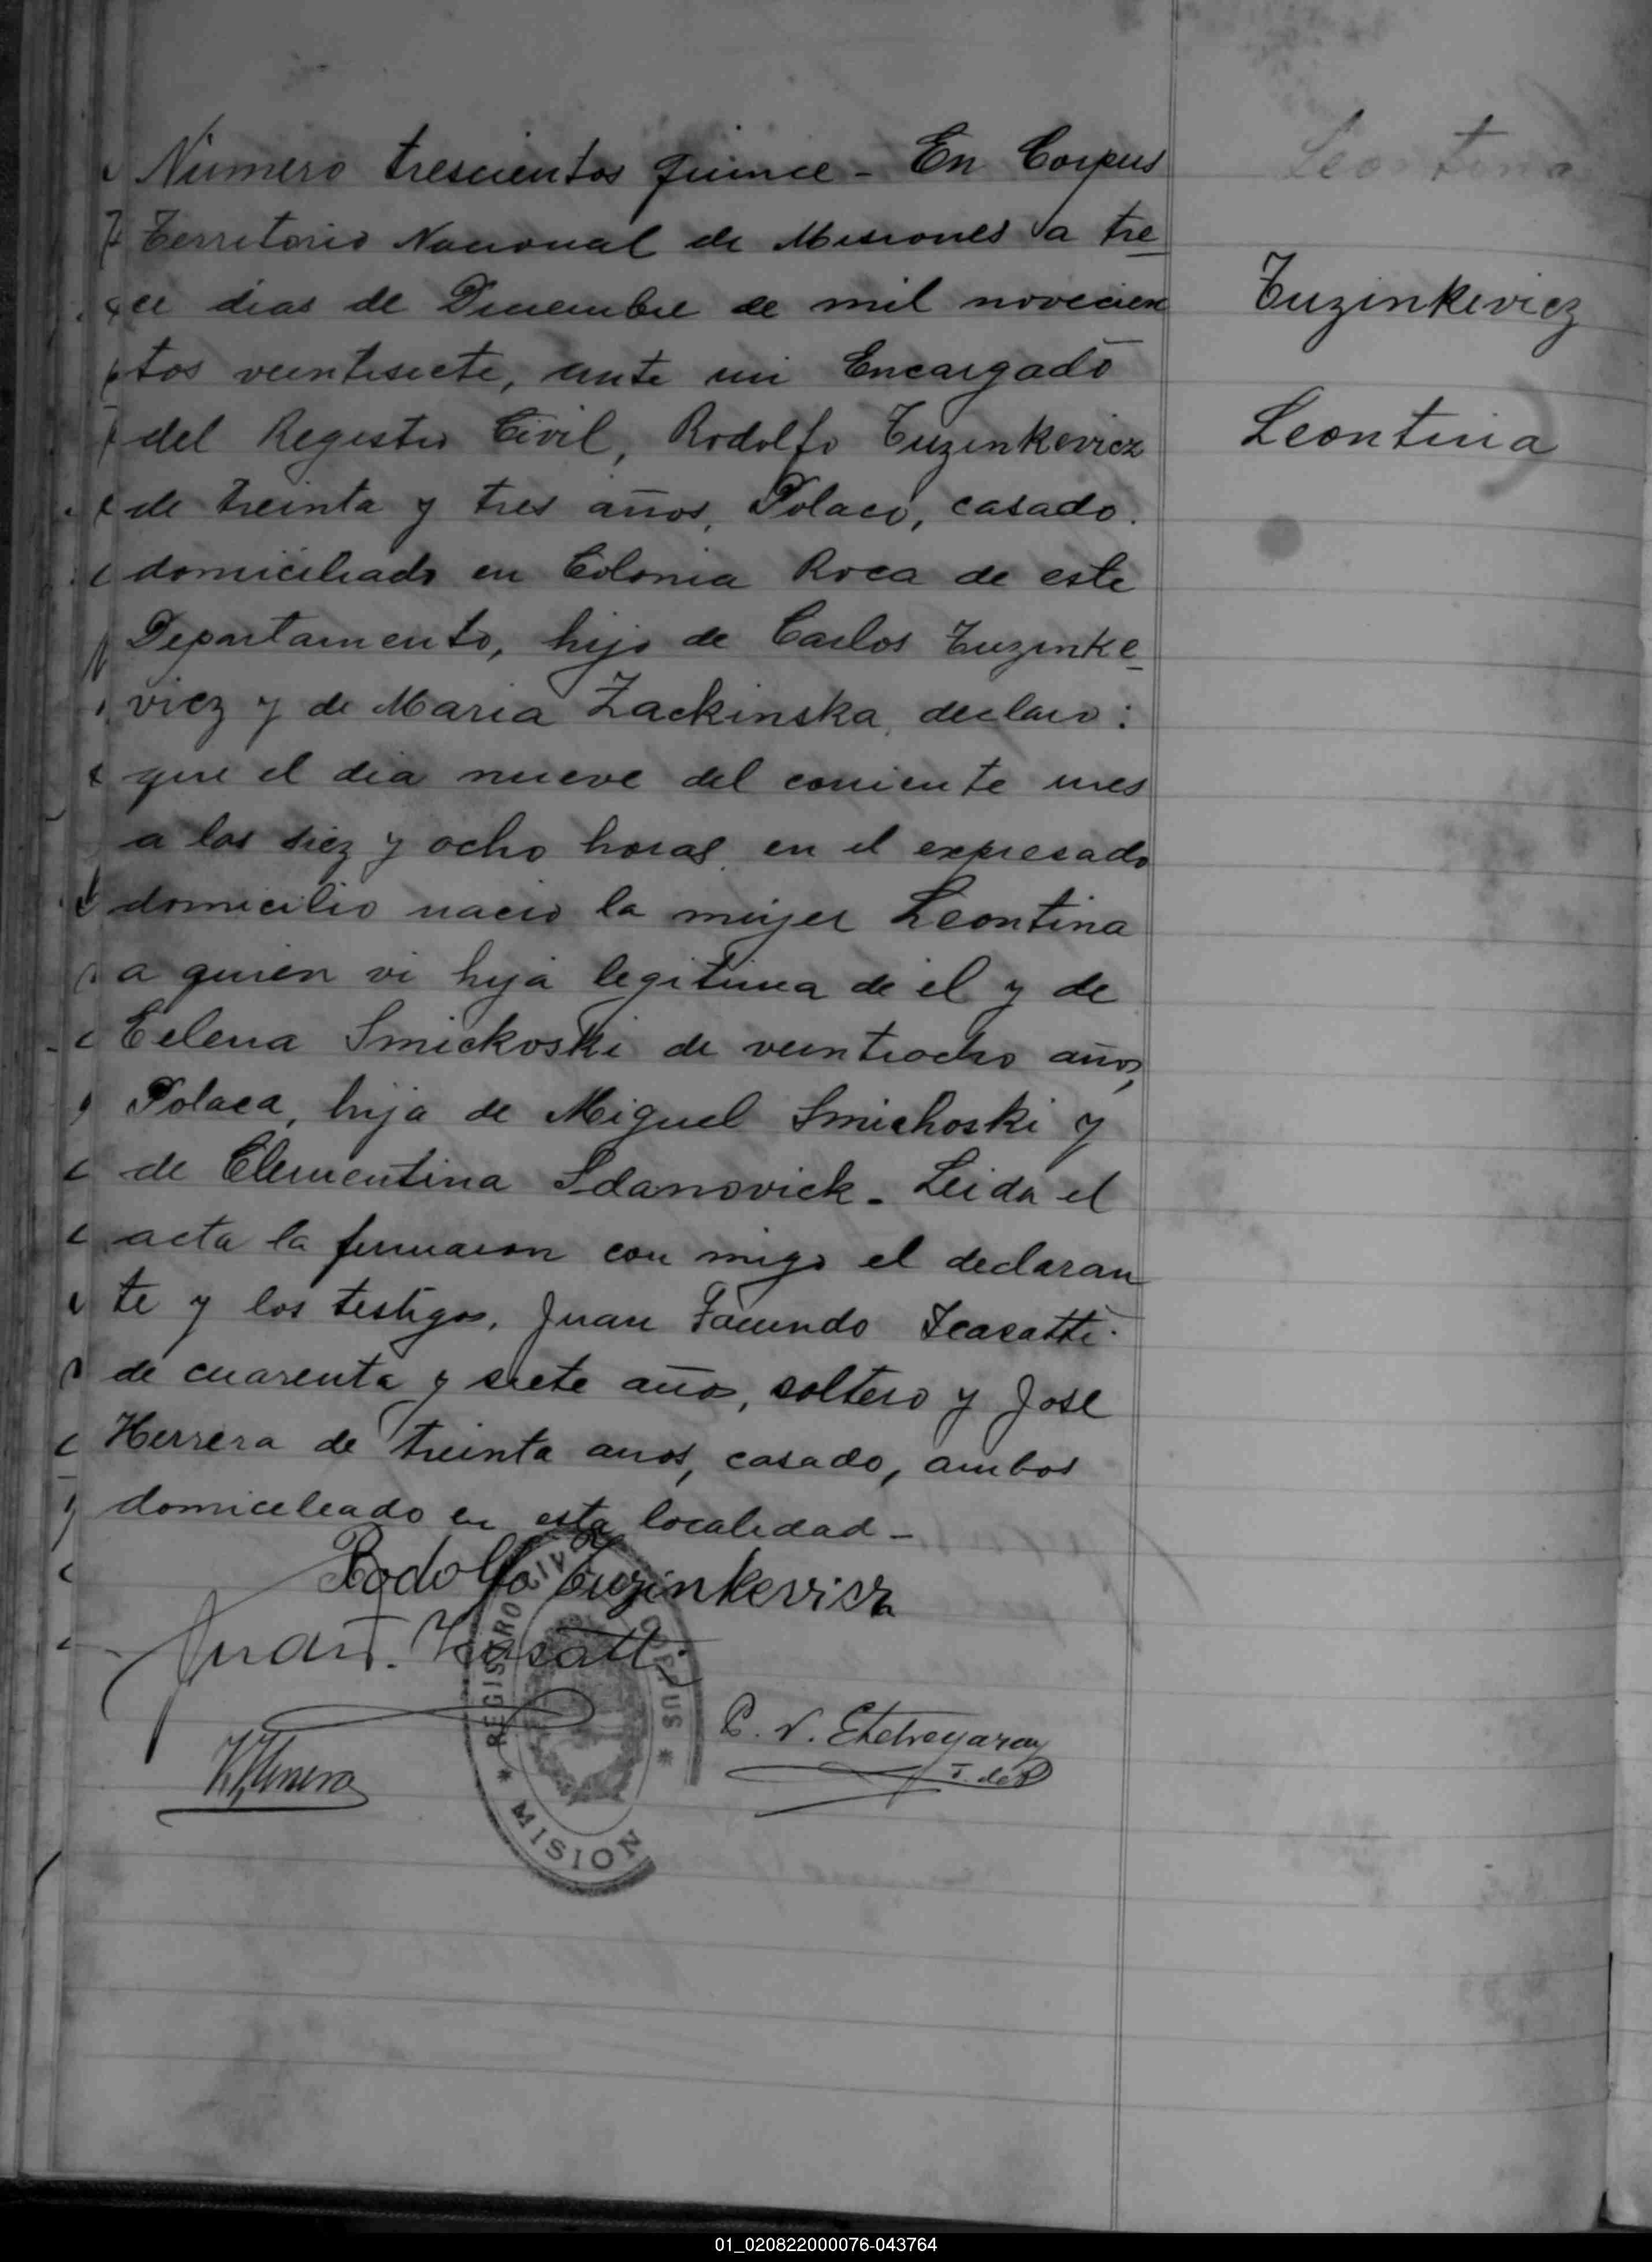 Leontina
Número trescientos quince - En Corpus
Territorio Nacional de Misiones a tre
ce dias de Diciembre de mil novecien
tos veintisiete, ante mi Encargado
del Registro Civil, Rodolfo Tuzinkevicz
de treinta y tres años, Polaco, casado.
domiciliado en Colonia Roca de este
Departamento, hijo de Carlos Tuzinke
vicz y de Maria Zackinska, declaro:
que el dia nueve del corriente mes
a las diez y ocho horas en el expresado
domicilio nacio la mujer Leontina
a quien vi hija legitima de él y de
Eelena Smickoski de veintiocho años,
Polaca, hija de Miguel Smichoski y
de Clementina Sdanovick - Leida el
acta la firmaron con migo el declaran
te y los testigos, Juan Facundo Icasatti.
de cuarenta y siete años, soltero y José
Herrera de treinta anos, casado, ambos
domiceleado en esta localidad -
Rodolfo Tuzinkevicz
Juan F. Icasatti
JHerrera
P. N. Etchegaray
J. de P
REGISTRO CIVIL
CORPUS
MISION
Tuzinkevicz
Leontina
01_020822000076-043764